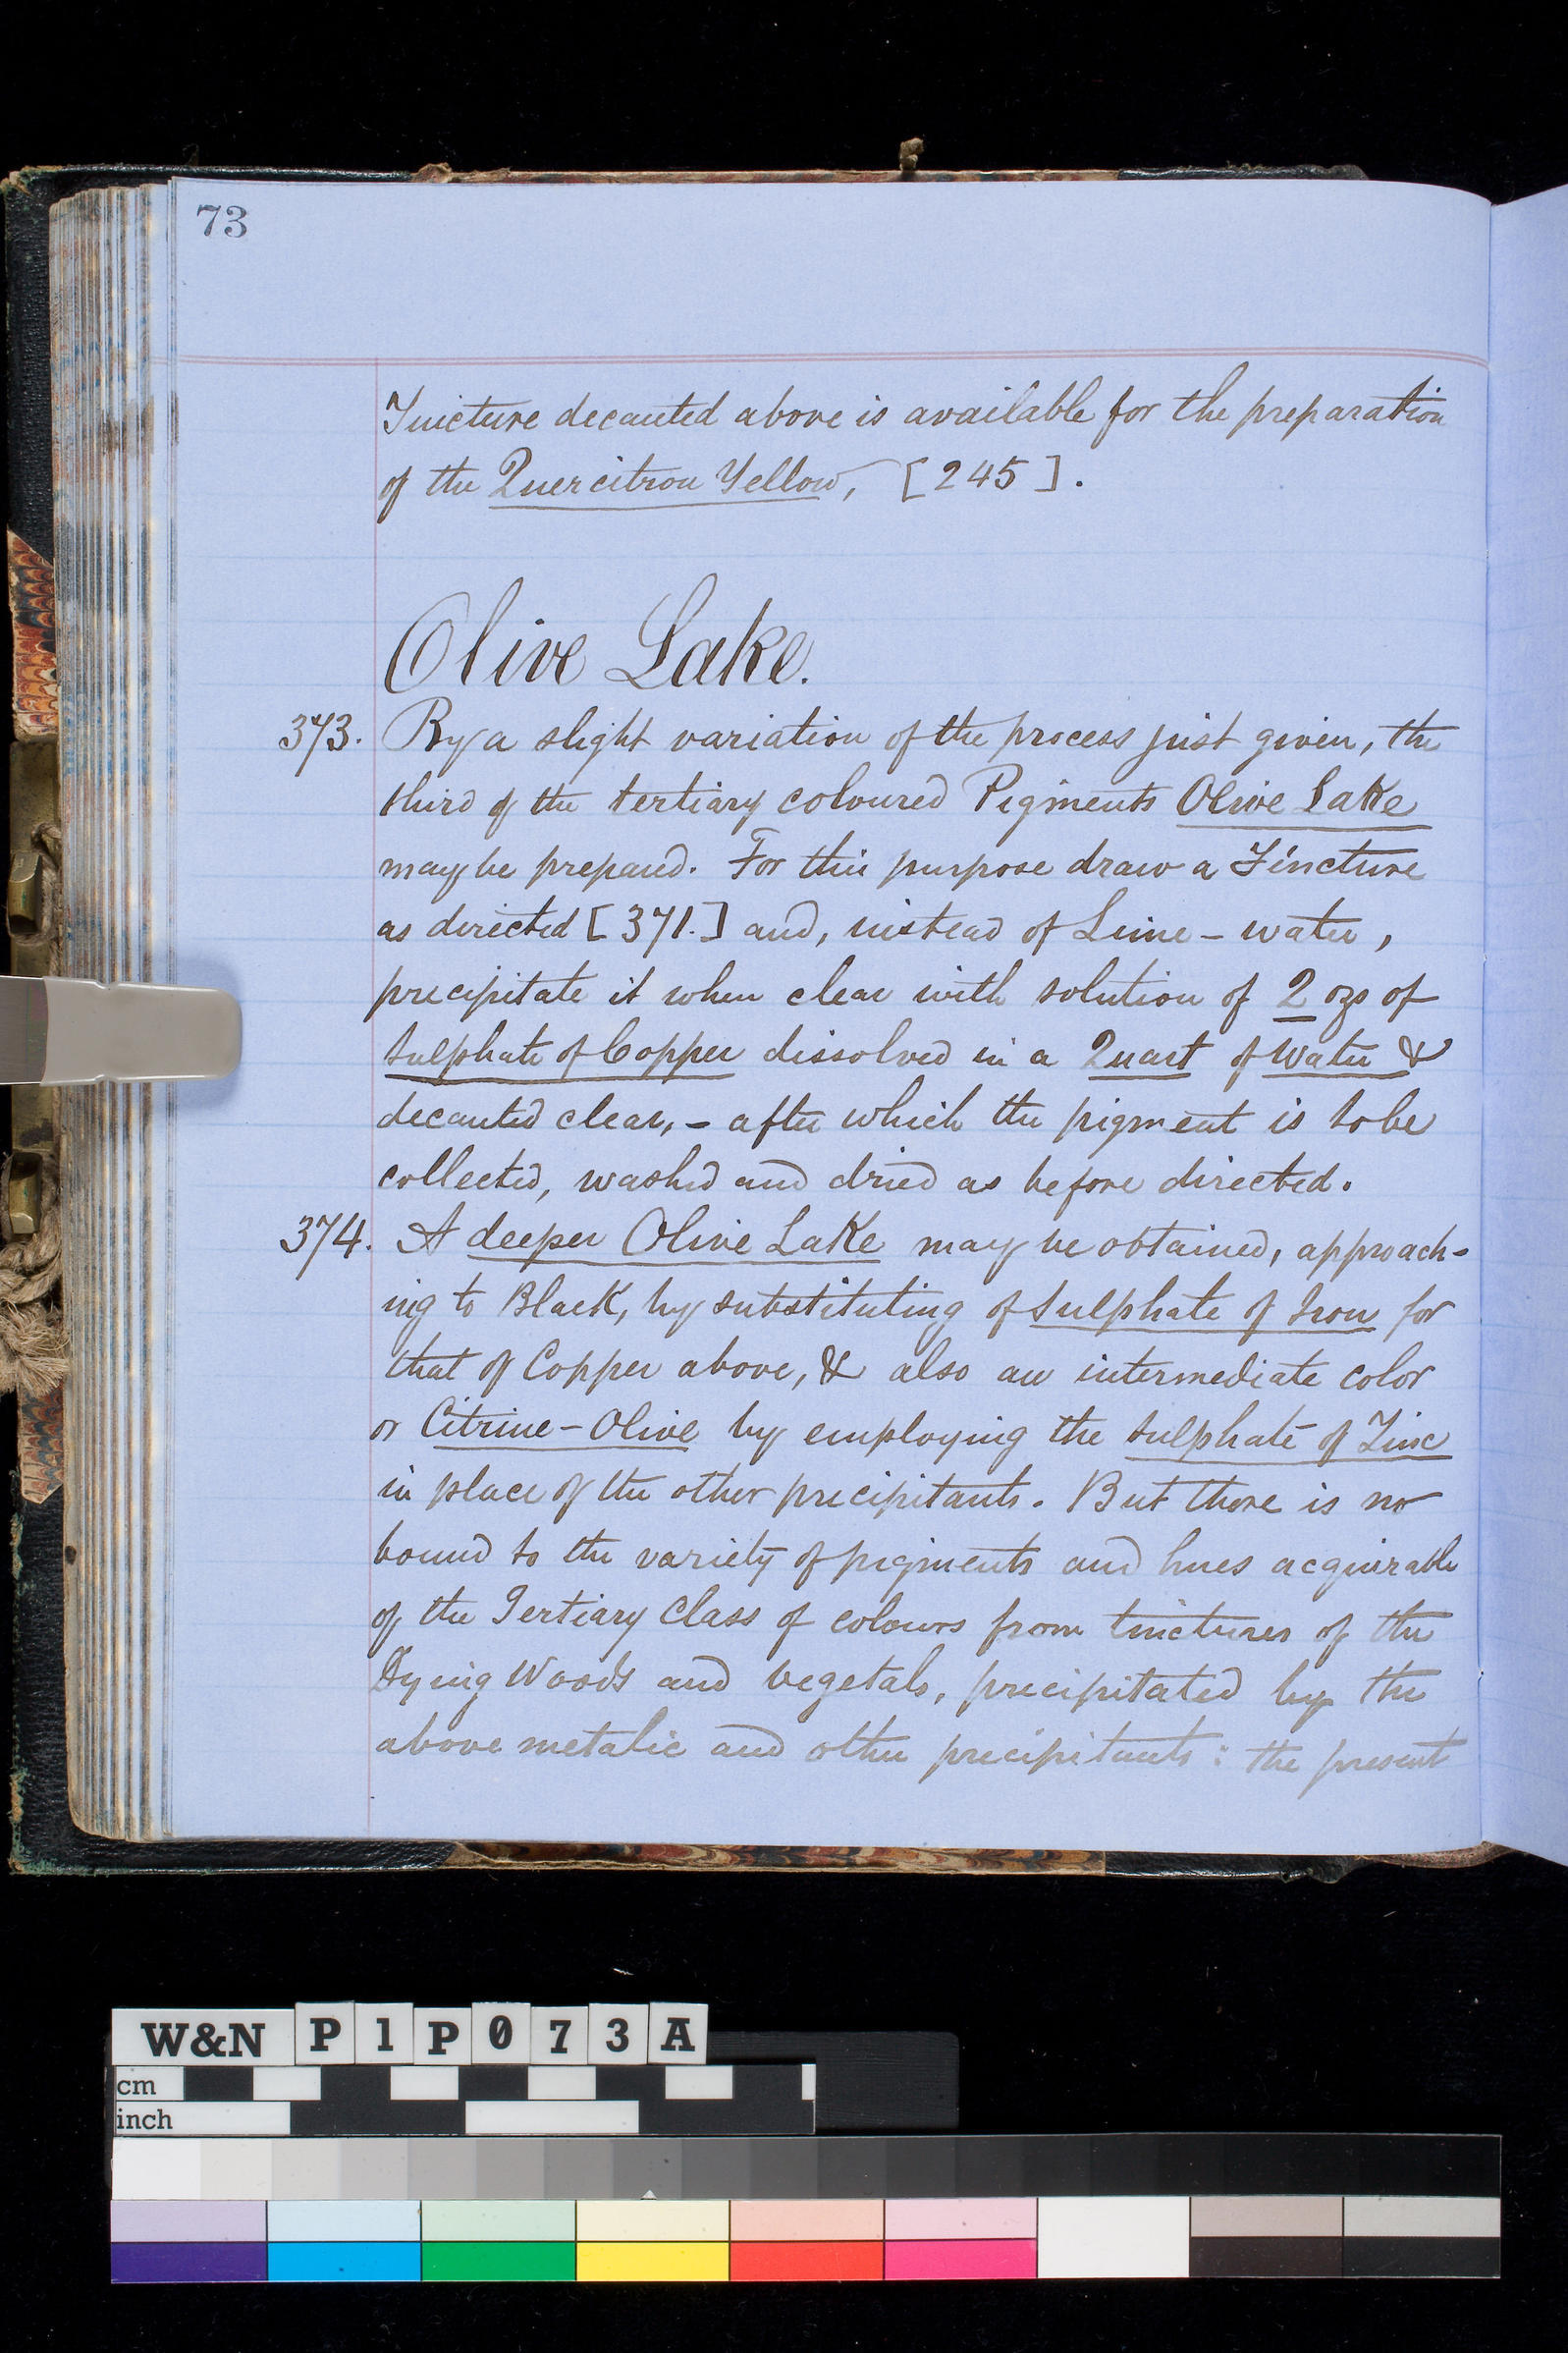 73
Tincture decanted above is available for the preparation
of the Quercitron Yellow, [245].
Olive Lake.
373. By a slight variation of the process just given, the
third of the tertiary coloured Pigments Olive Lake
may be prepared. For this purpose draw a Tincture
as directed [371.] and, instead of Lime-water,
precipitate it when clear with solution of 2 ozs of
Sulphate of Copper dissolved in a Quart of Water &
decanted clear,- after which the pigment is to be
collected, washed and dried as before directed.
374. A deeper Olive Lake may be obtained, approach-
ing to Black, by substituting of Sulphate of Iron for
that of Copper above, & also an intermediate color
or Citrine-Olive by employing the Sulphate of Zinc
in place of the other precipitants. But there is no
bound to the variety of pigments and hues acquirable
of the Tertiary Class of colours from tinctures of the
Dying Woods and vegetals, precipitated by the
above metalic and other precipitants: the present
W&N P1P073A
cm
inch